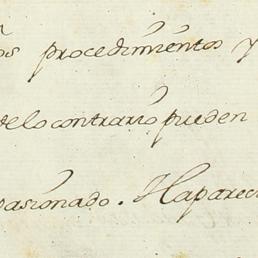 os procedimientos y
de lo contrario pueden
pasionado. Haparec